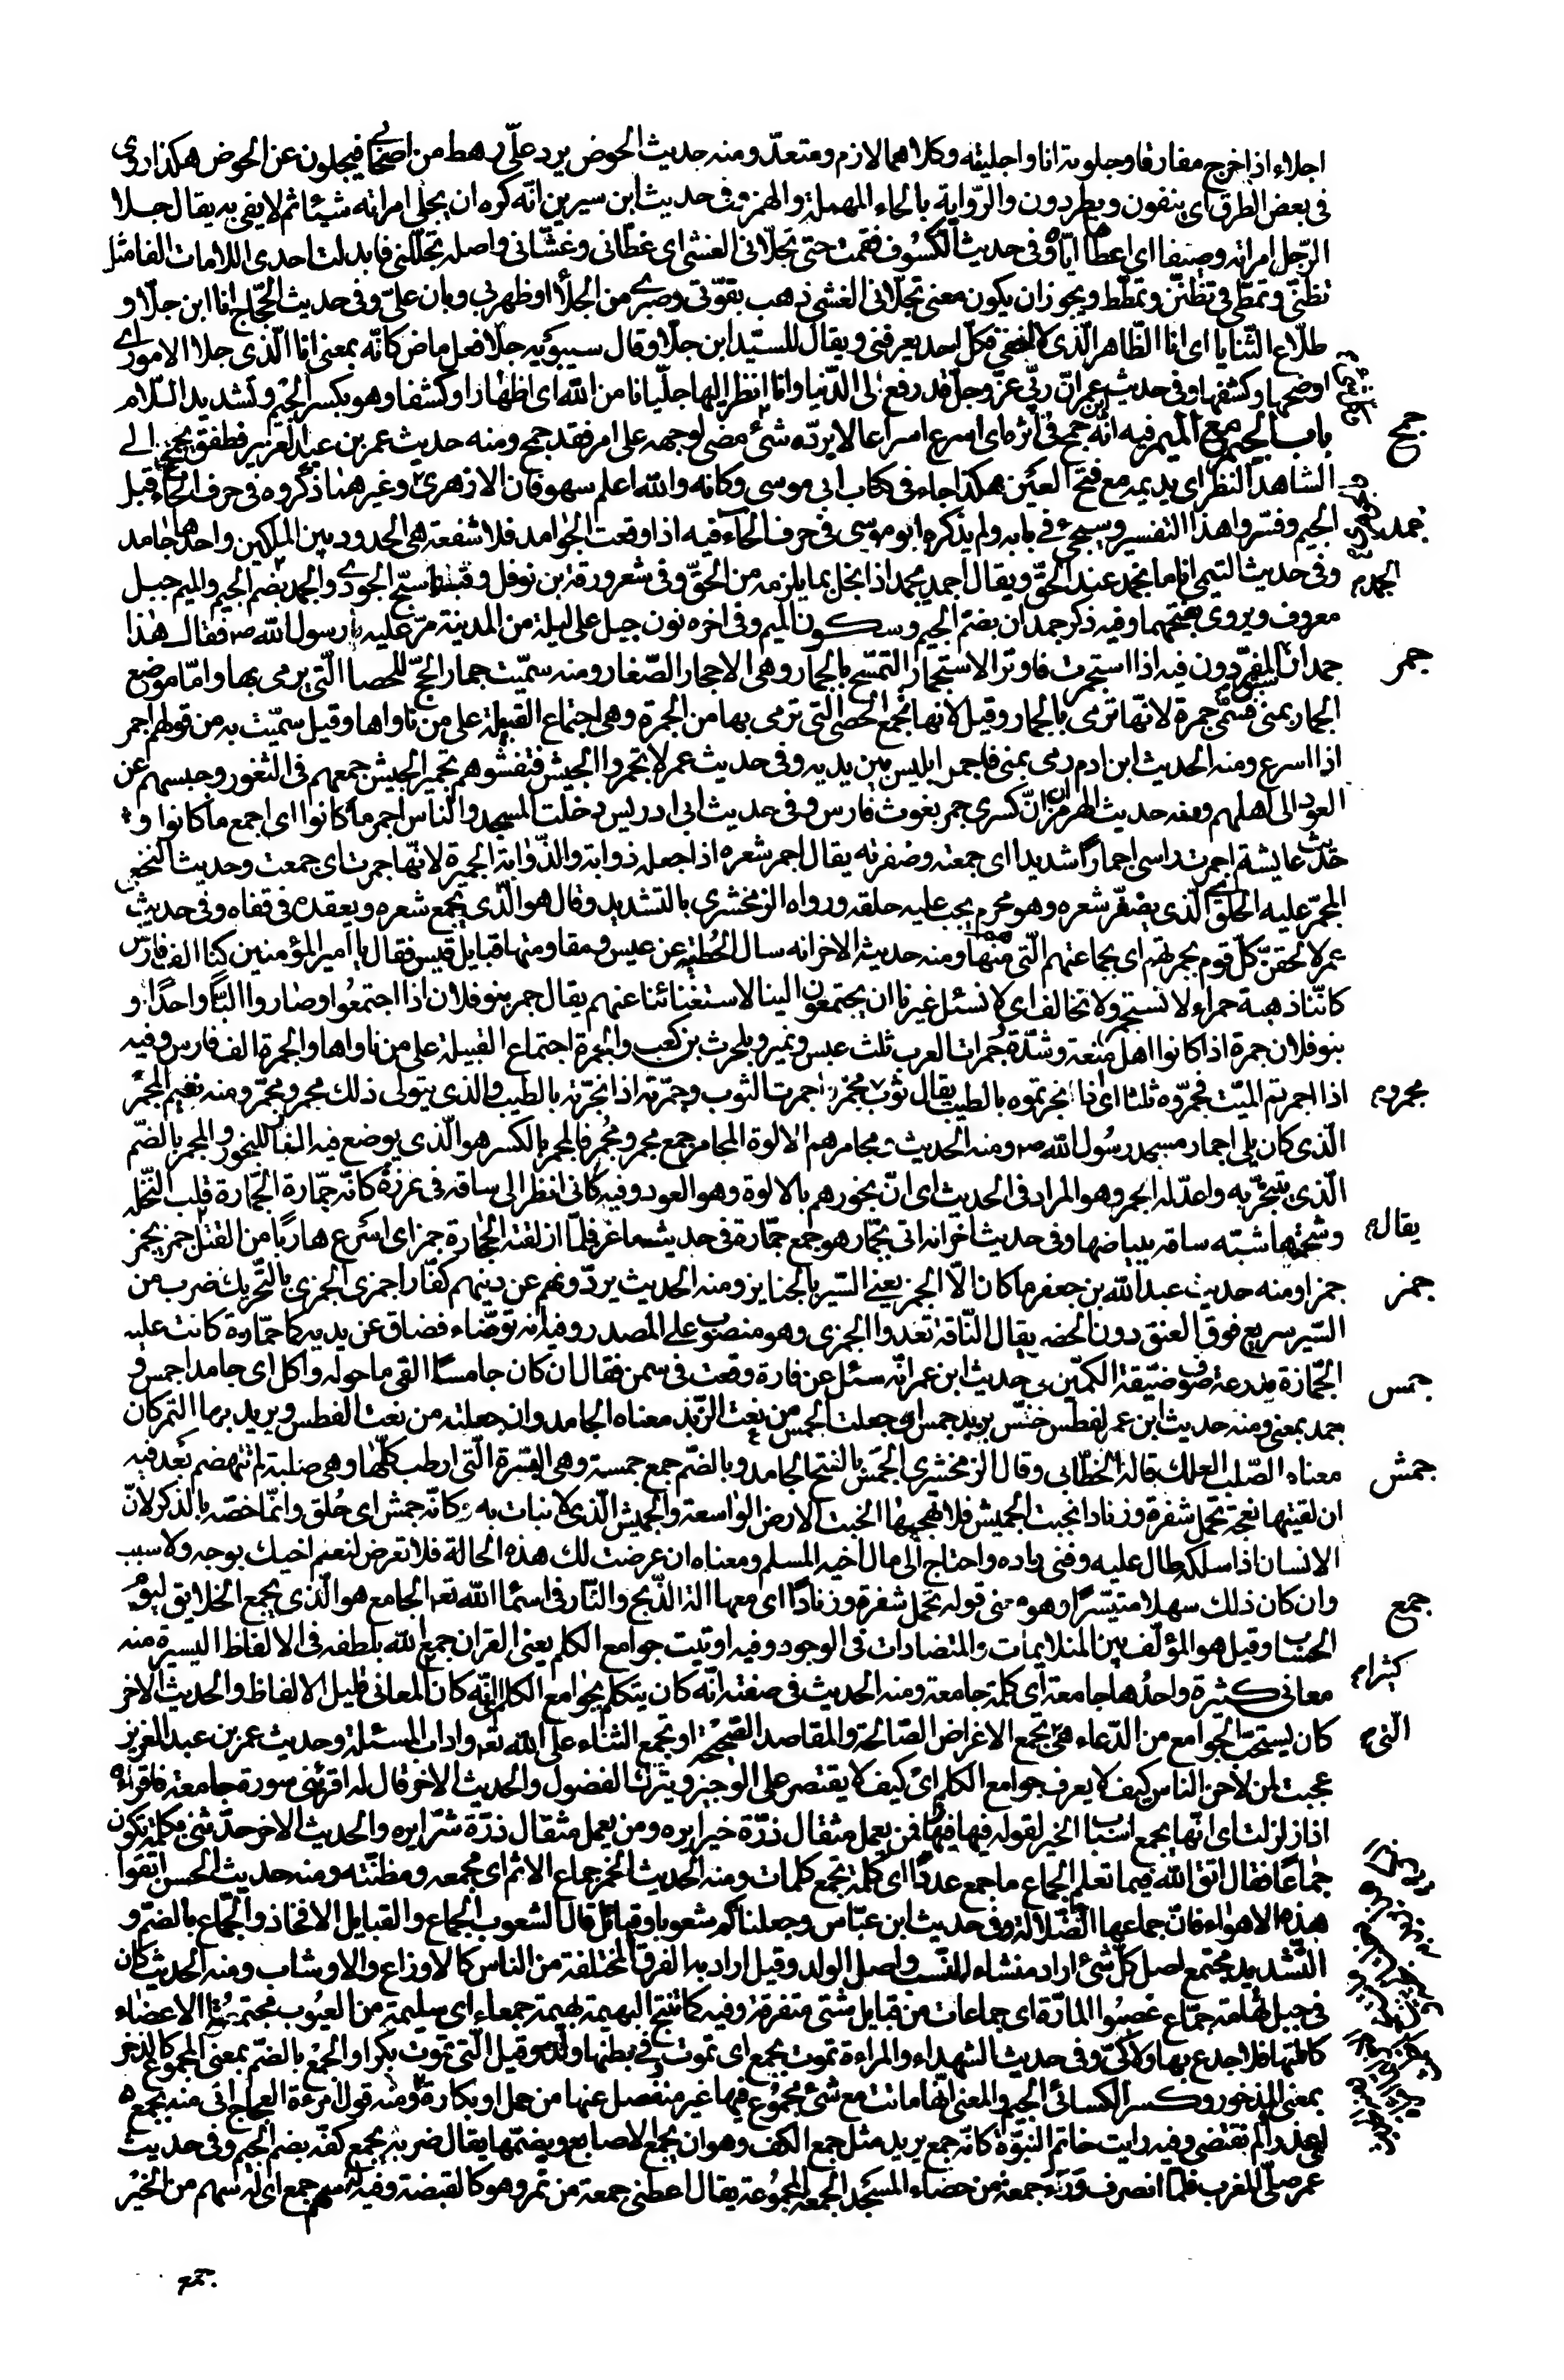 اجلاء اذا خرج مفارقا وجلوته انا واجليته وكلاهما لازم ومتعدّ ومنه حديث الحوض يرد علىّ رهط من اصحابي فيجلون عن الحوض هكذا روى
فى بعض الطرق اى ينفون ويطردون والرّواية بالحاء المهملة والهمز وفى حديث ابن سيرين انّه كره ان يجلى امراته شيئا ثم لا يفى به يقال جلا
الرّجل امراته وصيفا اى اعطاها ايّاه وفى حديث الكسوف فقمت حتى تجلّانى الغشى اى غطّانى وغشّانى واصله تجلّلنى فابدلت احدى اللامات الفا مثل
تظنّى وتمطّى فى تظنّن وتمطّط ويجوز ان يكون معنى تجلّانى الغشى ذهب بقوّتى وصبرى من الجلا او ظهر بى وبان علىّ وفى حديث الحجّاج انا ابن جلا و
طلّاع الثّنايا اى انا الظّاهر الّذى لا يخفى فكلّ احد يعرفنى ويقال للسّيّد ابن جلا وقال سيبويه جلا فعل ماض كانّه بمعنى انا الّذى جلا الامور اى
اوضحها وكشفها وفى حديث ابن عمر انّ ربّى عزّ وجلّ قد رفع لى الدّنيا وانا انظر اليها جلّيانا من الله اى اظهارا وكشفا وهو بكسر الجيم وتشديد اللّام
جمح باب الجيم مع الميم فيه انّه جمح فى اثره اى اسرع اسراعا لا يردّه شئ وكلّ شئ مضى لوجهه على امر فقد جمح ومنه حديث عمر بن عبد العزيز فطفق يجمح الى
الشاهد النظر اى يديمه مع فتح العين هكذا جاء فى كتاب ابى موسى وكانه والله اعلم سهو فان الازهرى وغيره هنا ذكروه فى حرف الحاء قبل
جمد الجيم وفسّروا هذا التفسير وسيجئ فى بابه ولم يذكره ابو موسى فى حرف الحاء فيه اذا وقعت الجوامد فلا شفعة هى الحدود بين الملكين واحدها جامد
وفى حديث التيمى انا ما نجمد عند الحقّ ويقال جمد يجمد اذا بخل بما يلزمه من الحقّ وفى شعر ورقة ابن نوفل وقبلنا سبّح الجودى والجمد بضم الجيم والميم جبل
معروف ويروى بفتحهما وفيه ذكر جمدان بضمّ الجيم وسكون الميم وفى اخره نون جبل على ليلة من المدينة مرّ عليه رسول الله ص فقال هذا
جمر جمدان سبق المفرّدون فيه اذا استجمرت فاوتر الاستجمار التمسّح بالجمار وهى الاحجار الصّغار ومنه سمّيت جمار الحجّ للحصا الّتى يرمى بها وامّا موضع
الجمار بمنى فسمّى جمرة لانّها ترمى بالجمار وقيل لانها مجمع الحصى التى ترمى بها من الجمرة وهى اجتماع القبيلة على من ناواها وقيل سمّيت به من قولهم اجمر
اذا اسرع ومنه الحديث ان ادم رمى بمنى فاجمر ابليس بين يديه وفى حديث عمر لا تجمروا الجيش فتفتنوهم تجمير الجيش جمعهم فى الثغور وحبسهم عن
العود الى اهلهم ومنه حديث الهرمزان انّ كسرى جمر بعوث فارس وفى حديث ابى ادريس دخلت المسجد والناس اجمر ما كانوا اى اجمع ما كانوا و
حديث عايشة اجمرت راسى اجمارا شديدا اى جمعته وضفرته يقال اجمر شعره اذا جعله ذوابة والذّوابة الجميرة لانّها جمرت اى جمعت وحديث النخعى
المجمر عليه الحلق اى الّذى يضفر شعره وهو محرم يجب عليه حلقه ورواه الزمخشرى بالتشديد وقال هو الّذى يجمع شعره ويعقده فى قفاه وفى حديث
عمر لالحقنّ كلّ قوم بجمرتهم اى بجماعتهم الّتى هم منها ومنه حديثه الاخر انه سال الحطيئة عن عبس ومقاومتها قبايل قيس فقال يا امير المؤمنين كنّا الف فارس
كانّنا ذهبة حمراء لا نستجمر ولا نخالف اى لا نسئل غيرنا ان يجتمعون الينا لاستغنائنا عنهم يقال جمر بنو فلان اذا اجتمعوا وصاروا البّا واحدا و
بنو فلان جمرة اذا كانوا اهل منعة وشدّة وجمرات العرب ثلث عبس ونمير وبلحرث بن كعب والجمرة اجتماع القبيلة على من ناواها والجمرة الف فارس وفيه
اذا اجمرتم الميّت فجمّروه ثلثا اى اذا بخرتموه بالطيب يقال ثوب مجمّر اجمرت الثوب وجمّرته اذا بخّرته بالطيب والذى يتولى ذلك مجمر ومجمّر ومنه نعيم المجمر
الّذى كان يلى اجمار مسجد رسول الله ص ومنه الحديث مجامرهم الالوة المجامر جمع مجمر ومجمر فالمجمر بالكسر هو الّذى يوضع فيه النار للبخور والمجمر بالضّم
الّذى يتبخّر به واعدّ له الجمر وهو المراد فى الحديث اى انّ بخورهم بالالوة وهو العود وفيه كانى انظر الى ساقه فى غرزه كانّه جمّارة الجمّارة قلب النّخلة
وشحمتها شبّه ساقه ببياضها وفى حديث اخر انه اتى بجمّار هو جمع جمّارة فى حديث ماعز فلمّا اذلقته الحجارة جمز اى اسرع هاربا من القتل جمز يجمز
جمز جمزا ومنه حديث عبد الله بن جعفر ما كان الّا الجمز يعنى السّير بالجنايز ومنه الحديث يردّونهم عن دينهم كفّارا جمزى الجمزى بالتّحريك ضرب من
السّير سريع فوق العنق دون الحضر يقال النّاقة تعدوا الجمزى وهو منصوب على المصدر وفيه انه توضّاء فضاق عن يديه كما جمّازة كانت عليه
جمس الجمّازة مدرعة صوف ضيّقة الكمّين فى حديث ابن عمر انّه سئل عن فارة وقعت فى سمن فقال ان كان جامسا القى ما حوله واكل اى جامدا جمس و
جمد بمعنى ومنه حديث ابن عمر لفطس خنس بزبد جمس ان جعلت الجمس من نعت الزّبد معناه الجامد وان جعلته من نعت الفطس ويريد بها التمر كان
جمش معناه الصّلب العلك قاله الخطّابى وقال الزمخشرى الجمس بالفتح الجامد وبالضّم جمع جمسة وهى البسرة الّتى ارطب كلّها وهى صلبة لم تنهضم بعد فيه
ان لقيتها نعجة تحمل شفرة وزنادا بخبت الجميش فلا تهجها الخبت الارض الواسعة والجميش الّذى لا نبات به كانّه جمش اى حلق وانّما خصّه بالذكر لانّ
الانسان اذا سلكه طال عليه وفنى زاده واحتاج الى مال اخيه المسلم ومعناه ان عرضت لك هذه الحالة فلا تعرض لنعم اخيك بوجه ولا سبب
جمع وان كان ذلك سهلا متيسّرا وهو معنى قوله تحمل شفرة وزنادا اى معها الة الذّبح والنّار فى اسماء الله تعه الجامع هو الّذى يجمع الخلايق ليوم
الحساب وقيل هو المؤلّف بين المتلايمات والمتضادات فى الوجود وفيه اوتيت جوامع الكلم يعنى القران جمع الله بلطفه فى الالفاظ اليسيرة منه
معانى كثيرة واحدها جامعة اى كلمة جامعة ومنه الحديث فى صفته انّه كان يتكلم بجوامع الكلم اى انّه كان المعانى قليل الالفاظ والحديث الاخر
كان يستحبّ الجوامع من الدّعاء هى تجمع الاغراض الصّالحة والمقاصد الصّحيحة او تجمع الثناء على الله تعه واداب المسئلة وحديث عمر بن عبد العزيز
عجبت لمن لاحن الناس كيف لا يعرف جوامع الكلم اى كيف لا يقتصر على الوجيز ويترك الفضول والحديث الاخر قال له اقرئنى سورة جامعة فاقراه
اذا زلزلت اى انّها تجمع اسباب الخير لقوله فيها فمن يعمل مثقال ذرّة خيرا يره ومن يعمل مثقال ذرّة شرّا يره والحديث الاخر حدّثنى بكلمة تكون
جماعا فقال اتق الله فيما تعلم الجماع ما جمع عددا اى كلمة تجمع كلمات ومنه الحديث الخمر جماع الاثم اى مجمعه ومظنّته ومنه حديث الحسن اتّقوا
هذه الاهواء فانّ جماعها الضّلالة وفى حديث ابن عبّاس وجعلناكم شعوبا وقبائل قال الشعوب الجماع والقبايل الافخاذ والجمّاع بالضّم و
التّشديد مجتمع اصل كلّ شئ اراد منشاء النّسب واصل الولد وقيل اراد به الفرق المختلفة من الناس كالاوزاع والاوشاب ومنه الحديث كان
فى جبل تهامة جمّاع غصبوا المارّة اى جماعات من قبايل شتى متفرقة وفيه كما تنتج البهيمة بهيمة جمعاء اى سليمة من العيوب مجتمعة الاعضاء
كاملتها فلا جدع بها ولا كىّ وفى حديث الشهداء والمراءة تموت بجمع اى تموت وفى بطنها ولد وقيل الّتى تموت بكرا والجمع بالضّم بمعنى المجموع كالذخر
بمعنى المذخور وكسر الكسائى الجيم والمعنى انّها ماتت مع شئ مجموع فيها غير منفصل عنها من حمل او بكارة ومنه قول امرءة العجاج انى منه بجمع
اى عذراء لم يفتضنى وفيه رايت خاتم النبوّة كانّه جمع يريد مثل جمع الكف وهو ان يجمع الاصابع ويضمّها يقال ضربه بجمع كفّه بضم الجيم وفى حديث
عمر صلّى المغرب فلمّا انصرف درء جمعة من حصاء المسجد الجمعة المجموعة يقال اعطنى جمعة من تمر وهو كالقبضة وفيه له سهم جمع اى له سهم من الخير
جمع